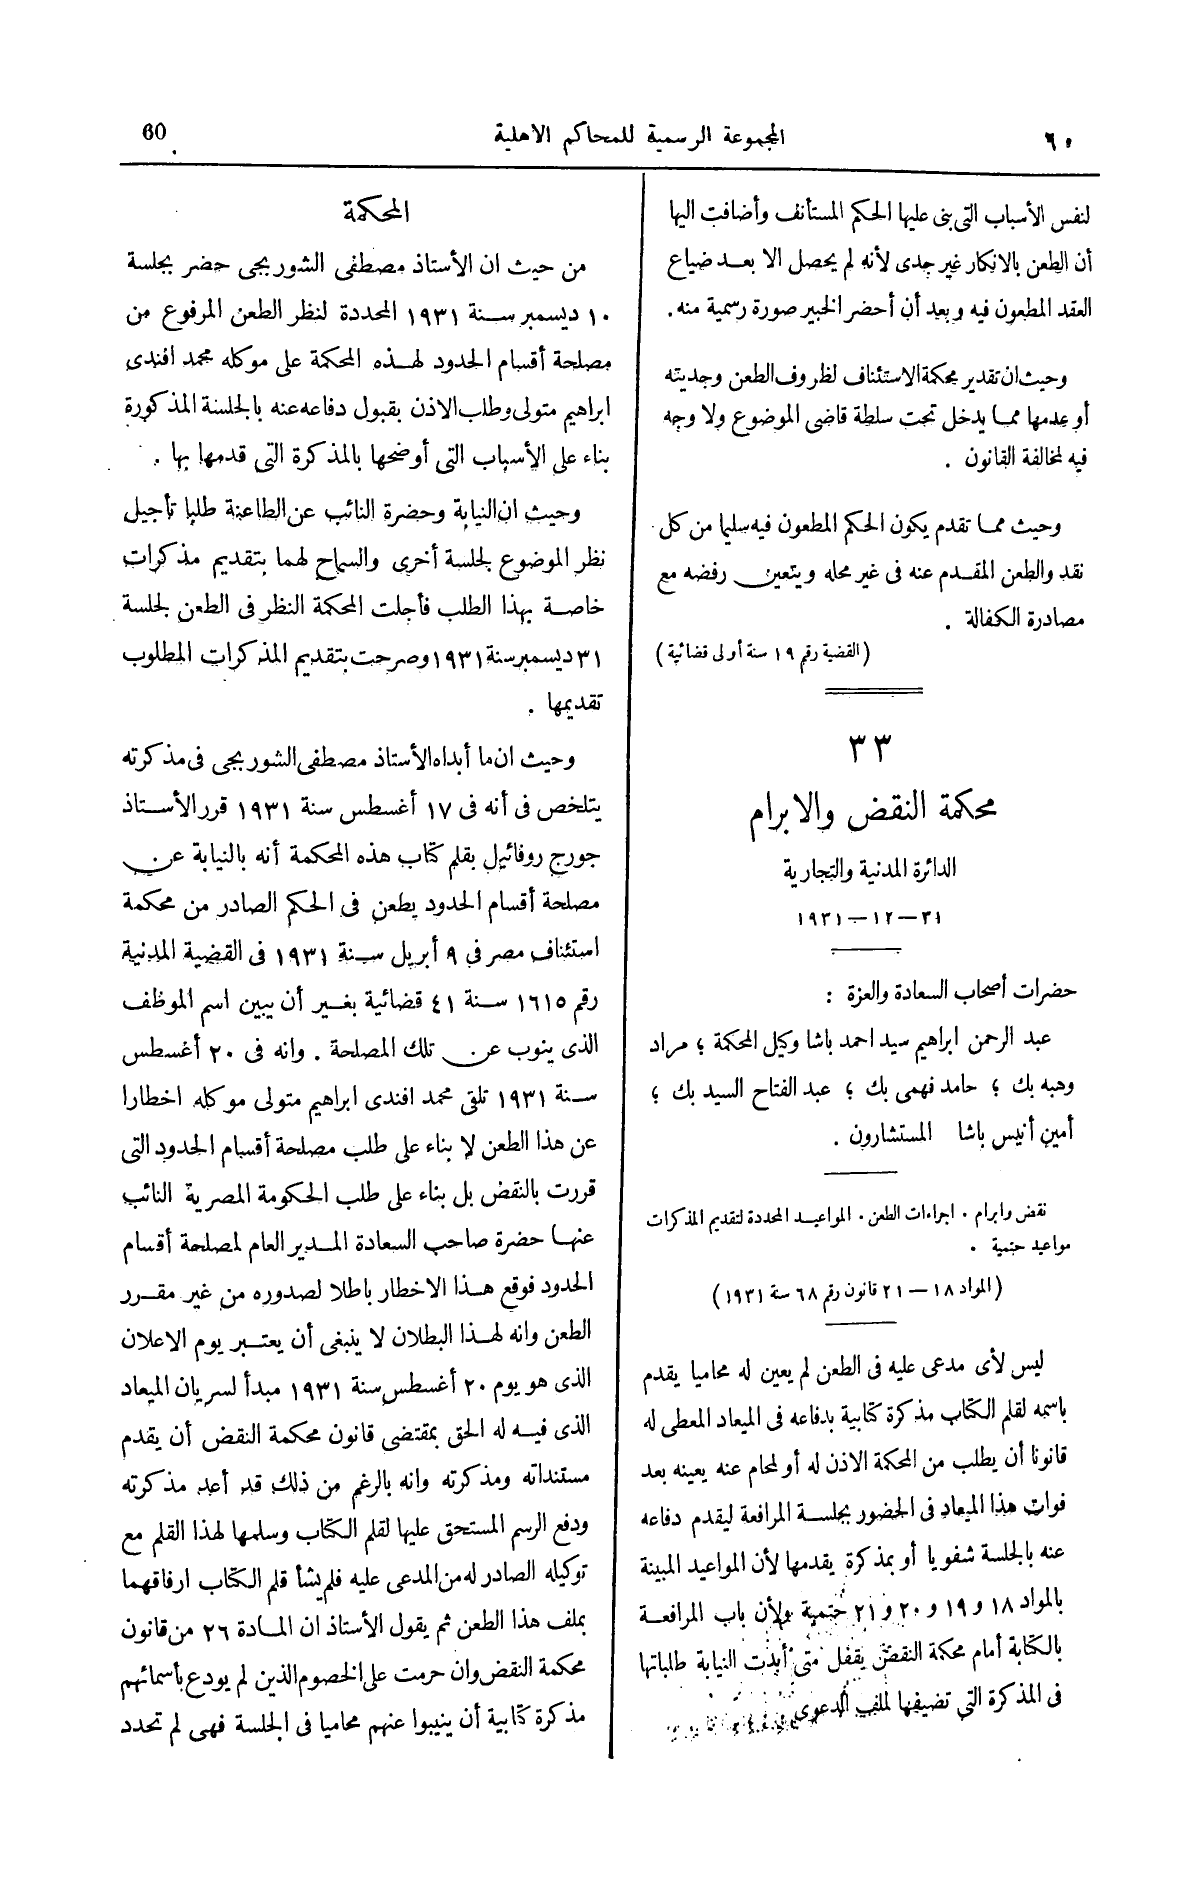 ٦٠
المجموعة الرسمية للمحاكم الاهلية
60
لنفس الأسباب التى بنى عليها الحكم المستأنف وأضافت اليها
أن الطعن بالانكار غير جدى لأنه لم يحصل الا بعد ضياع
العقد المطعون فيه وبعد أن أحضر الخبير صورة رسمية منه .
وحيث ان تقدير محكمة الاستئناف لظروف الطعن وجديته
أو عدمها مما يدخل تحت سلطة قاضى الموضوع ولا وجه
فيه لمخالفة القانون .
وحيث مما تقدم يكون الحكم المطعون فيه سليما من كل
نقد والطعن المقدم عنه فى غير محله ويتعين رفضه مع
مصادرة الكفالة .
(القضية رقم ١٩ سنة أولى قضائية)
٣٣
محكمة النقض والابرام
الدائرة المدنية والتجارية
٣١—١٢—١٩٣١
حضرات أصحاب السعادة والعزة :
عبد الرحمن ابراهيم سيد احمد باشا وكيل المحكمة ؛ مراد
وهبه بك ؛ حامد فهمى بك ؛ عبد الفتاح السيد بك ؛
أمين أنيس باشا المستشارون .
نقض وابرام . اجراءات الطعن . المواعيد المحددة لتقديم المذكرات
مواعيد حتمية .
(المواد ١٨ — ٢١ قانون رقم ٦٨ سنة ١٩٣١)
ليس لأى مدعى عليه فى الطعن لم يعين له محاميا يقدم
باسمه لقلم الكتاب مذكرة كتابية بدفاعه فى الميعاد المعطى له
قانونا أن يطلب من المحكمة الاذن له أو لمحام عنه يعينه بعد
فوات هذا الميعاد فى الحضور بجلسة المرافعة ليقدم دفاعه
عنه بالجلسة شفويا أو بمذكرة يقدمها لأن المواعيد المبينة
بالمواد ١٨ و ١٩ و ٢٠ و ٢١ حتمية ولأن باب المرافعة
بالكتابة أمام محكمة النقض يقفل متى أبدت النيابة طلباتها
فى المذكرة التى تضيفها لملف الدعوى
المحكمة
من حيث ان الأستاذ مصطفى الشوربجى حضر بجلسة
١٠ ديسمبر سنة ١٩٣١ المحددة لنظر الطعن المرفوع من
مصلحة أقسام الحدود لهذه المحكمة على موكله محمد افندى
ابراهيم متولى وطلب الاذن بقبول دفاعه عنه بالجلسة المذكورة
بناء على الأسباب التى أوضحها بالمذكرة التى قدمها بها .
وحيث ان النيابة وحضرة النائب عن الطاعنة طلبا تأجيل
نظر الموضوع لجلسة أخرى والسماح لهما بتقديم مذكرات
خاصة بهذا الطلب فأجلت المحكمة النظر فى الطعن لجلسة
٣١ ديسمبر سنة ١٩٣١ وصرحت بتقديم المذكرات المطلوب
تقديمها .
وحيث ان ما أبداه الأستاذ مصطفى الشوربجى فى مذكرته
يتلخص فى أنه فى ١٧ أغسطس سنة ١٩٣١ قرر الأستاذ
جورج روفائيل بقلم كتاب هذه المحكمة أنه بالنيابة عن
مصلحة أقسام الحدود يطعن فى الحكم الصادر من محكمة
استئناف مصر فى ٩ أبريل سنة ١٩٣١ فى القضية المدنية
رقم ١٦١٥ سنة ٤١ قضائية بغير أن يبين اسم الموظف
الذى ينوب عن تلك المصلحة . وانه فى ٢٠ أغسطس
سنة ١٩٣١ تلقى محمد افندى ابراهيم متولى موكله اخطارا
عن هذا الطعن لا بناء على طلب مصلحة أقسام الحدود التى
قررت بالنقض بل بناء على طلب الحكومة المصرية النائب
عنها حضرة صاحب السعادة المدير العام لمصلحة أقسام
الحدود فوقع هذا الاخطار باطلا لصدوره من غير مقرر
الطعن وانه لهذا البطلان لا ينبغى أن يعتبر يوم الاعلان
الذى هو يوم ٢٠ أغسطس سنة ١٩٣١ مبدأ لسريان الميعاد
الذى فيه له الحق بمقتضى قانون محكمة النقض أن يقدم
مستنداته ومذكرته وانه بالرغم من ذلك قد أعد مذكرته
ودفع الرسم المستحق عليها لقلم الكتاب وسلمها لهذا القلم مع
توكيله الصادر له من المدعى عليه فلم يشأ قلم الكتاب ارفاقهما
بملف هذا الطعن ثم يقول الأستاذ ان المادة ٢٦ من قانون
محكمة النقض وان حرمت على الخصوم الذين لم يودع بأسمائهم
مذكرة كتابية أن ينيبوا عنهم محاميا فى الجلسة فهى لم تحدد